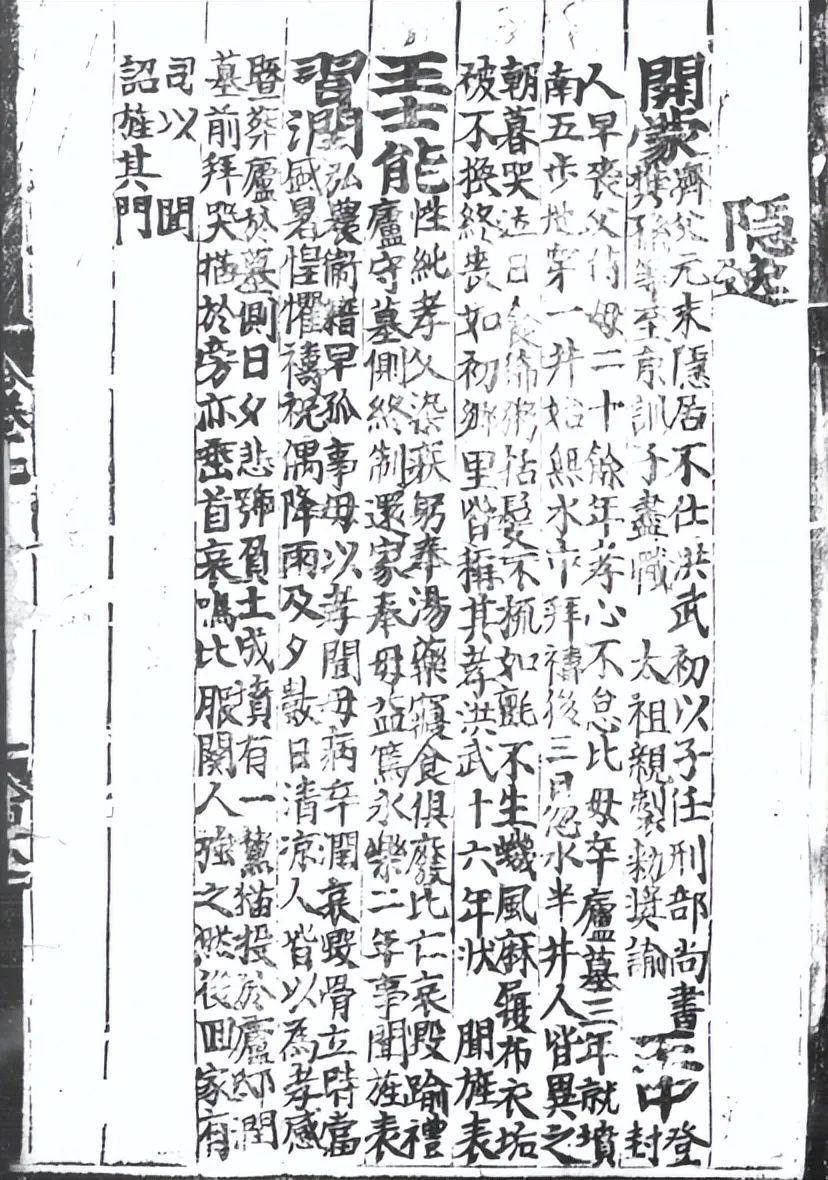 隱逸
開蒙濟父元末隱居不仕洪武初以子任刑部尚書
攜孫等至京訓子盡職 太祖親製勑獎諭
王中登封
人早喪父侍母二十餘年孝心不怠比母卒廬墓三年就墳
南五步地穿一井始無水中拜禱後三日忽水半井人皆異之
朝暮哭 日食 粥括髮不梳如氈不生蟣風麻屨布衣垢
被不換終喪如初鄉里皆稱其孝洪武十六年狀 聞旌表
王士能性純孝父染疾躬奉湯藥寢食俱廢比亡哀毀踰禮
廬守墓側終制還家奉母益篤永樂二年事聞旌表
習閏弘農衛籍早孤事母以孝聞母病卒潤哀毀骨立時當
盛暑惶懼禱祝偶降雨及夕數日清凉人皆以為孝感
暨葬廬於墓側日夕悲號負土成墳有一 猫投於廬 潤
墓前拜哭猫於旁亦垂首哀鳴比服闋人強之然後回家有
司以 聞
詔旌其門